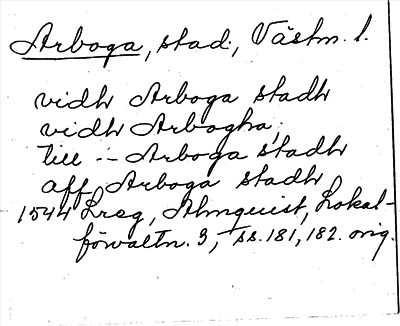 Arboga, stad, Västm. l.
vidh Arboga stadh
vidh Arbogha,
till -- Arboga stadh
aff Arboga stadh
1544 Lreg, Almquist, Lokal-
förvaltn. 3, ss. 181, 182. orig.